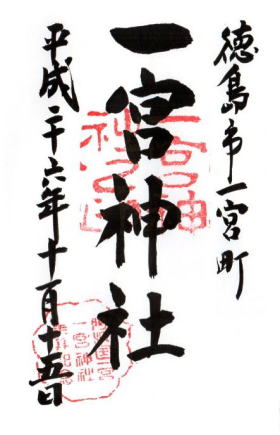 徳島市一宮町
一宮神社
平成二十六年十一月十五日